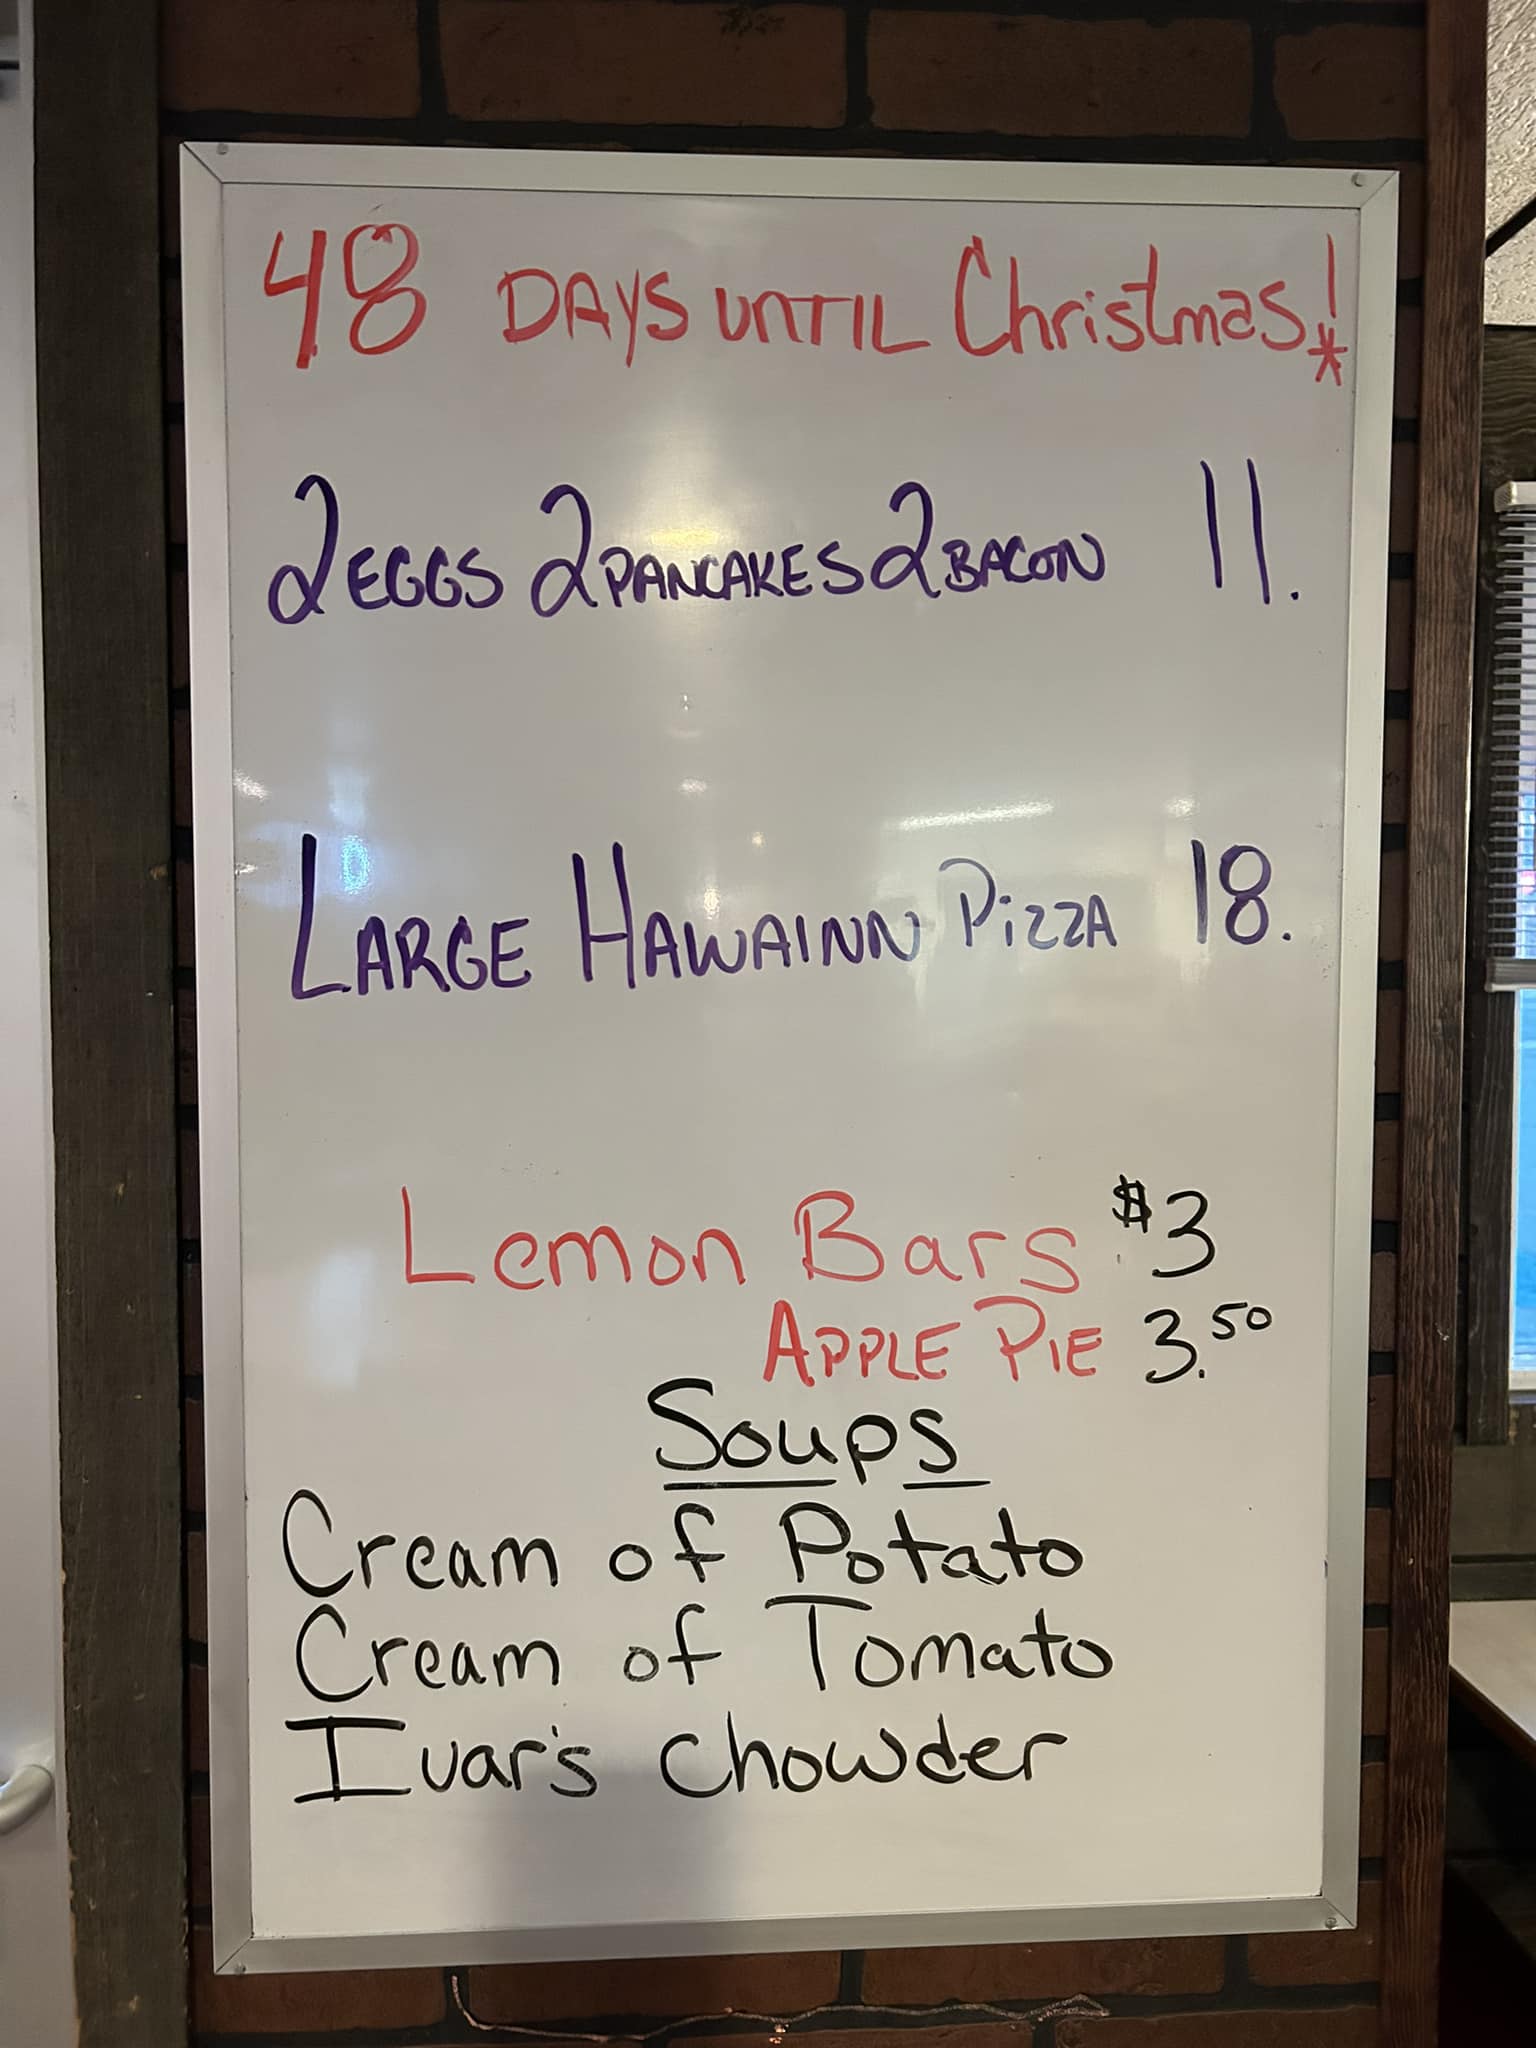 48 DAYS UNTIL Christmas!
2 EGGS 2 PANCAKES 2 BACON 11.
LARGE HAWAINN PIZZA 18.
Lemon Bars $3
APPLE PIE 3.50
Soups
Cream of Potato
Cream of Tomato
Ivar's Chowder